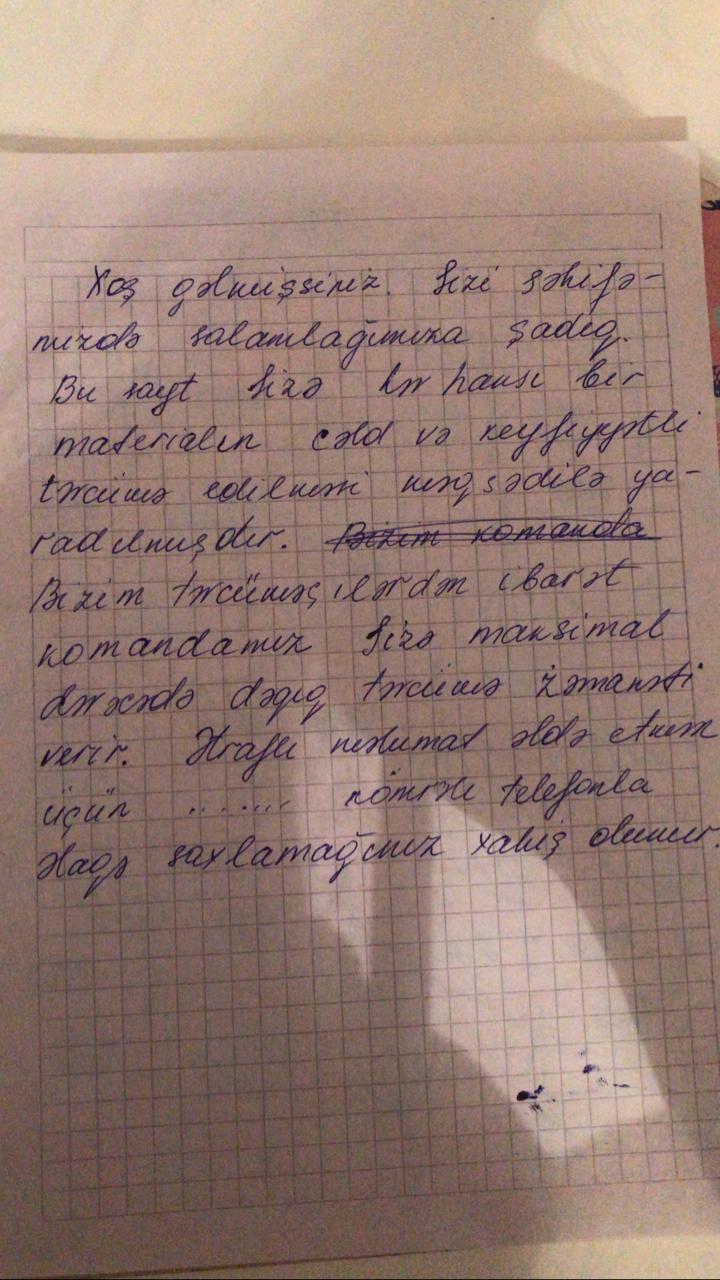 Xoş gəlmişsiniz. Sizi səhifə-
mizdə salamlağımıza şadıq.
Bu sayt Sizə hər hansı bir
materialın cəld və keyfiyyətli
tərcümə edilməsi məqsədilə ya-
radılmışdır. Bizim komanda
Bizim tərcüməçilərdən ibarət
komandamız Sizə maksimal
dərəcədə dəqiq tərcümə zəmanəti
verir. Ətraflı məlumat əldə etmək
üçün ....... nömrəli telefonla
əlaqə saxlamağınız xahiş olunur.